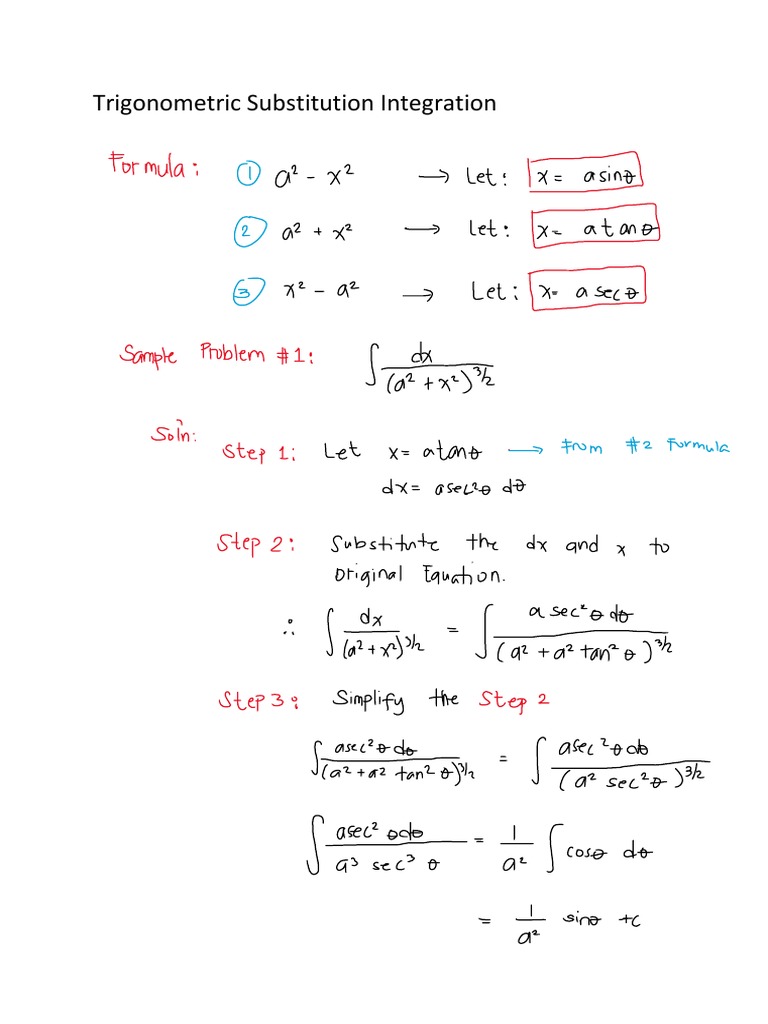 Trigonometric Substitution Integration
Formula: ① a² - x² → Let: x = a sinθ
② a² + x² → Let: x = a tanθ
③ x² - a² → Let: x = a secθ
Sample Problem #1: ∫ dx / (a² + x²)^3/2
Sol'n:
Step 1: Let x = a tanθ → From #2 Formula
dx = a sec²θ dθ
Step 2: Substitute the dx and x to
Original Equation.
∴ ∫ dx / (a² + x²)^3/2 = ∫ a sec²θ dθ / (a² + a² tan²θ)^3/2
Step 3: Simplify the Step 2
∫ a sec²θ dθ / (a² + a² tan²θ)^3/2 = ∫ a sec²θ dθ / (a² sec²θ)^3/2
∫ a sec²θ dθ / a³ sec³θ = 1/a² ∫ cosθ dθ
= 1/a² sinθ + c